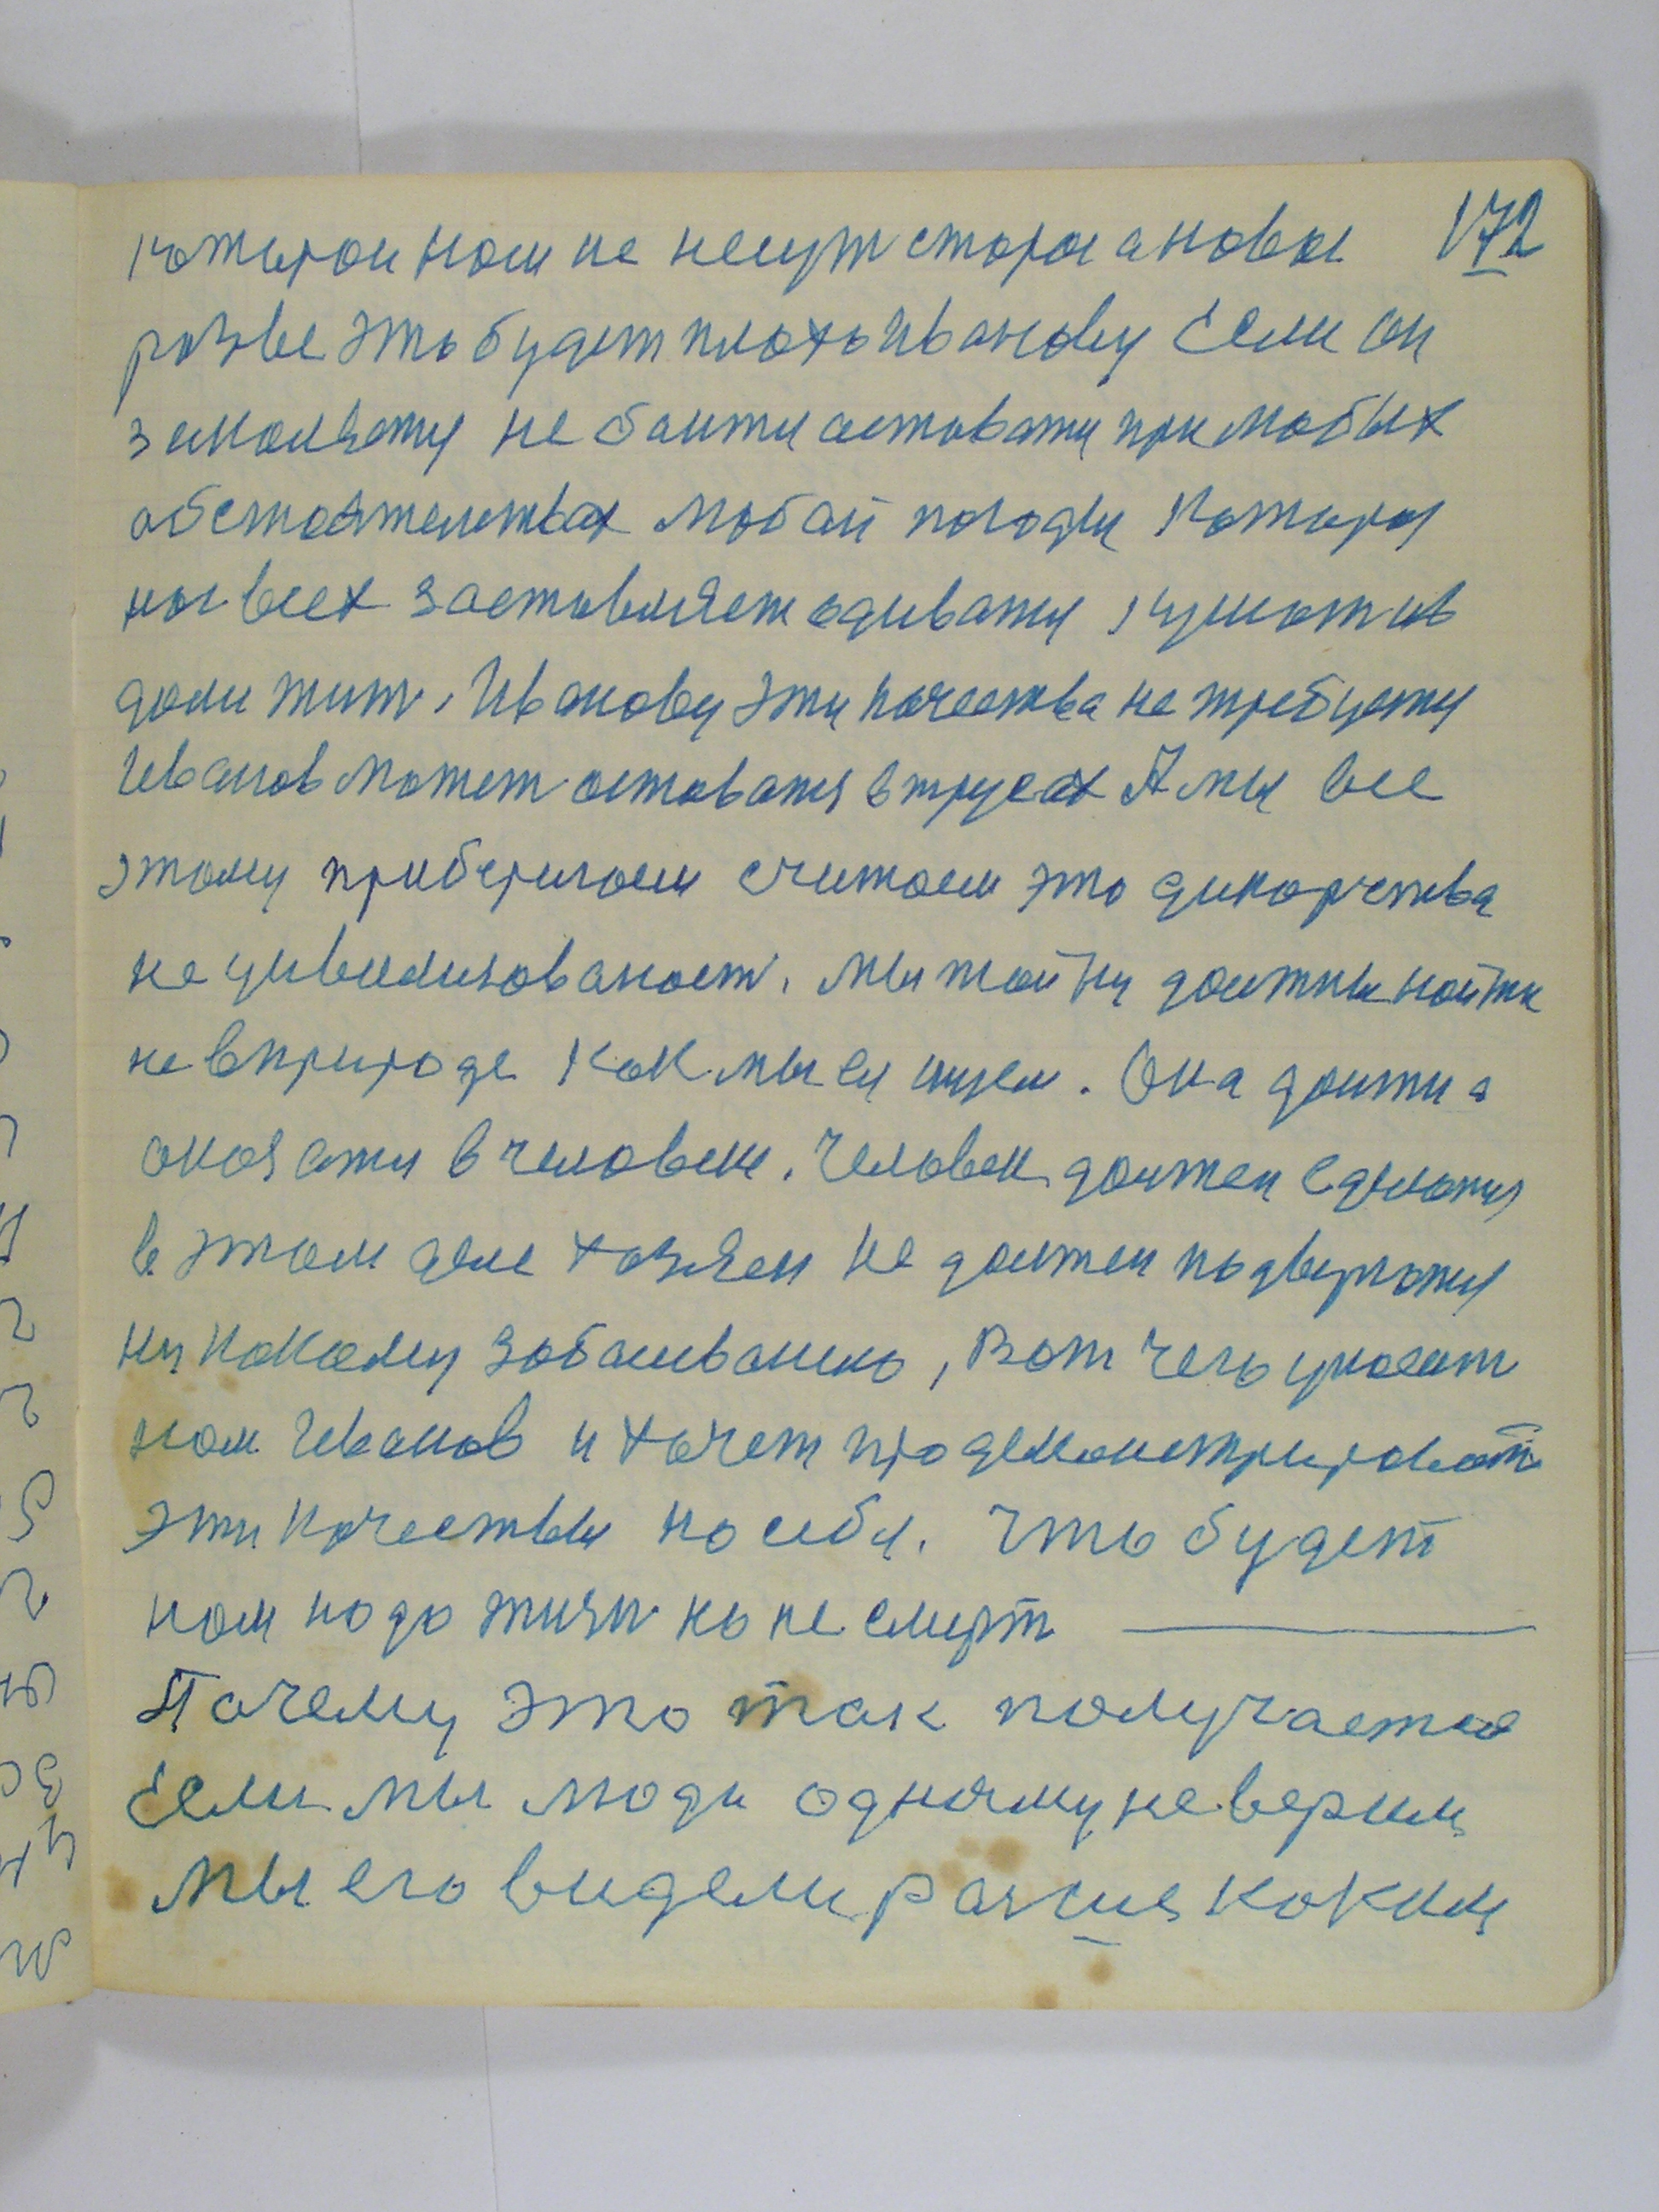 172
которои нам не несут старои а новои
розве это будет плохо Иванову Если он
закаляетця не боитця аставатця при любых
обстоятельствах любай погоды Каторая
нас всех заставляет одеватця кушать и в
доми жит. Иванову эти качества не требуетця
Иванов может оставатся в трусах А мы все
этому прибегаем считаем это дикарчества
не цивилизованост. Мы тайну должны найти
не в природе как мы ея ищем. Она должна
аказатця в человеке. Человек должен сделатця
в этом деле хозяен не должен подвергатця
ни какому заболеванию, Вот чего указует
нам Иванов и хочет продемонстрировать
эти качествы на себя. Что будет
нам надо жизнь но не смерт
Почему это так получается
Если мы люди одниму не верим
мы его видели ранше каким